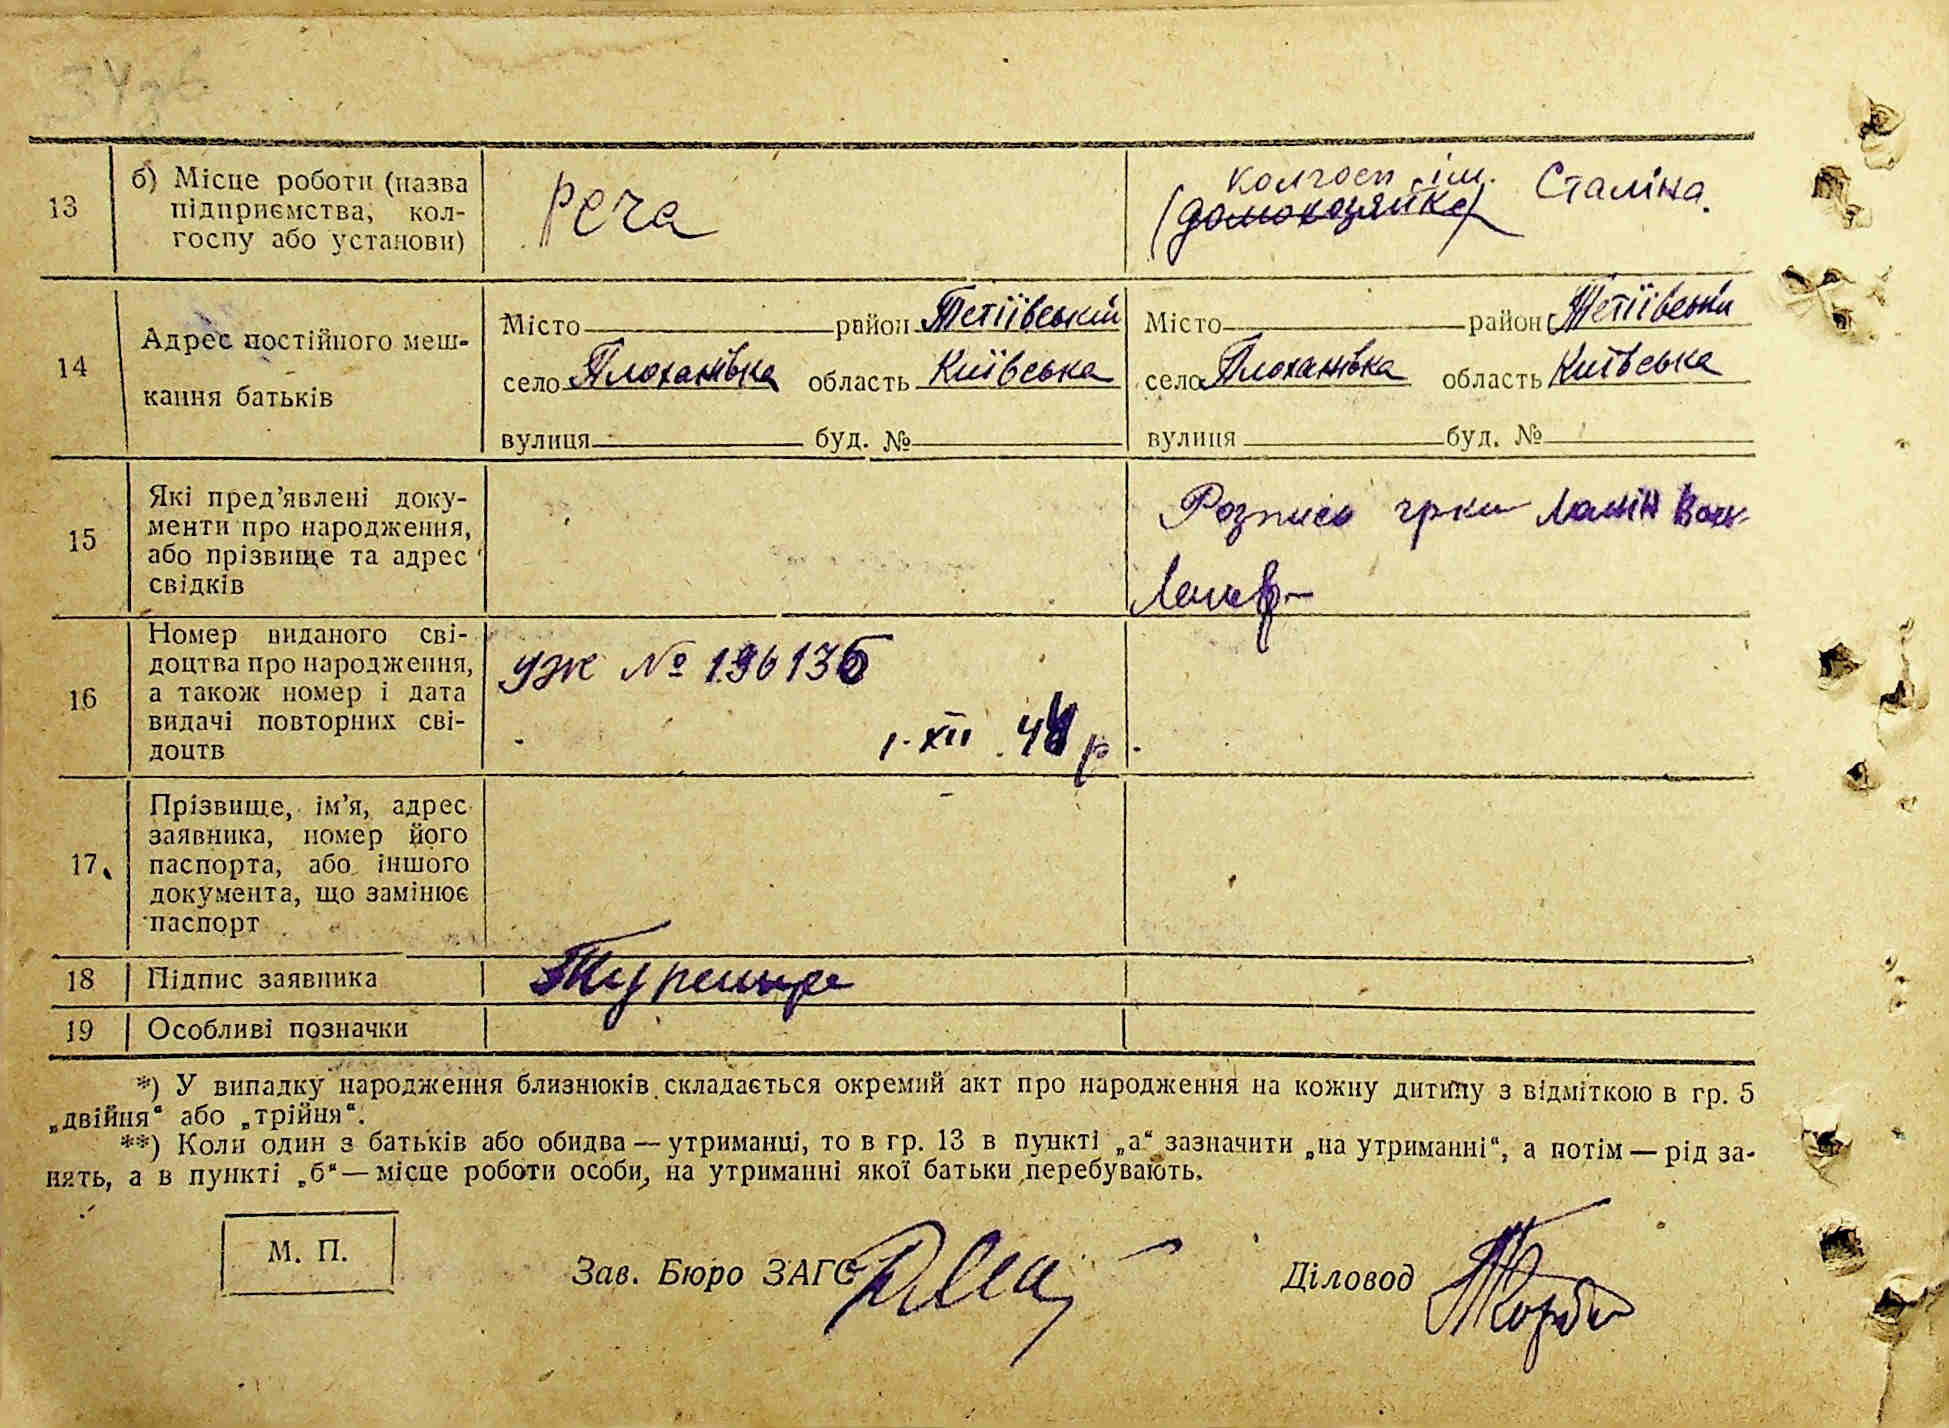 13
б) Місце роботи (назва
підприємства, кол-
госпу або установи)
РСЧА
колгосп ім. Сталіна.
(домохозяйка)
14
Адрес постійного меш-
кання батьків
Місто район Тетіївський
село Плоханівка область Київська
вулиця буд. №
Місто район Тетіївськи
село Плоханівка область Київська
вулиця буд. №
15
Які пред’явлені доку-
менти про народження,
або прізвище та адрес
свідків
Розписа
16
Номер виданого сві-
доцтва про народження,
а також номер і дата
видачі повторних сві-
доцтв
УЖ № 196136
1.XII. р.
17
Прізвище, ім’я, адрес
заявника, номер його
паспорта, або іншого
документа, що замінює
паспорт
18
Підпис заявника
19
Особливі позначки
*) У випадку народження близнюків складається окремий акт про народження на кожну дитину з відміткою в гр. 5
„двійня“ або „трійня“.
**) Коли один з батьків або обидва — утриманці, то в гр. 13 в пункті „а“ зазначити „на утриманні“, а потім — рід за-
нять, а в пункті „б“ — місце роботи особи, на утриманні якої батьки перебувають.
М. П.
Зав. Бюро ЗАГС
Діловод